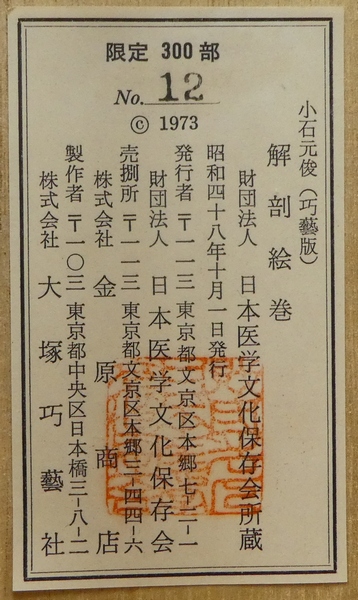 限定 300 部
No. 12
© 1973
小石元俊（巧藝版）
解剖絵巻
財団法人 日本医学文化保存会所蔵
昭和四十八年十月一日発行
発行者〒一一三 東京都文京区本郷七-二-一
財団法人 日本医学文化保存会
売捌所〒一一三 東京都文京区本郷三-四四-六
株式会社 金原商店
製作者〒一〇三 東京都中央区日本橋三-八-二
株式会社 大塚巧藝社